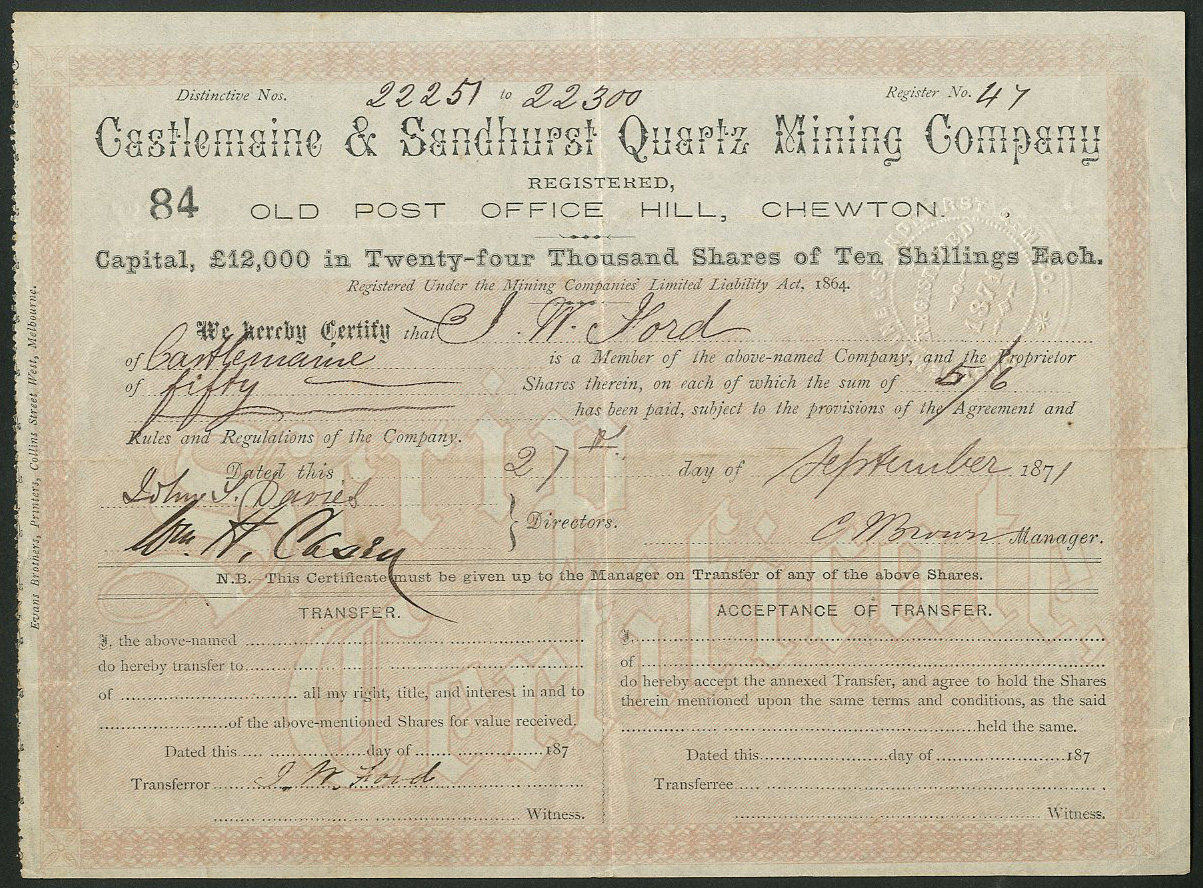 Distinctive Nos. 22251 to 22300 Register No. 47
Castlemaine & Sandhurst Quartz Mining Company
REGISTERED,
84 OLD POST OFFICE HILL, CHEWTON.
Capital, £12,000 in Twenty-four Thousand Shares of Ten Shillings Each.
Registered Under the Mining Companies' Limited Liability Act, 1864.
We hereby Certify that J. W. Ford
of Castlemaine is a Member of the above-named Company, and the Proprietor
of fifty Shares therein, on each of which the sum of 5/6
has been paid, subject to the provisions of the Agreement and
Rules and Regulations of the Company.
Dated this 27th day of September 1871
John T. Davies
Wm. H. Casey Directors. C Brown Manager.
N.B.—This Certificate must be given up to the Manager on Transfer of any of the above Shares.
TRANSFER.
I, the above-named
do hereby transfer to
of all my right, title, and interest in and to
of the above-mentioned Shares for value received.
Dated this day of 187
Transferror J. W. Ford
Witness.
ACCEPTANCE OF TRANSFER.
I,
of
do hereby accept the annexed Transfer, and agree to hold the Shares
therein mentioned upon the same terms and conditions, as the said
held the same.
Dated this day of 187
Transferree
Witness.
Scrip
Certificate,
Evans Brothers, Printers, Collins Street West, Melbourne.
REGISTERED
1871